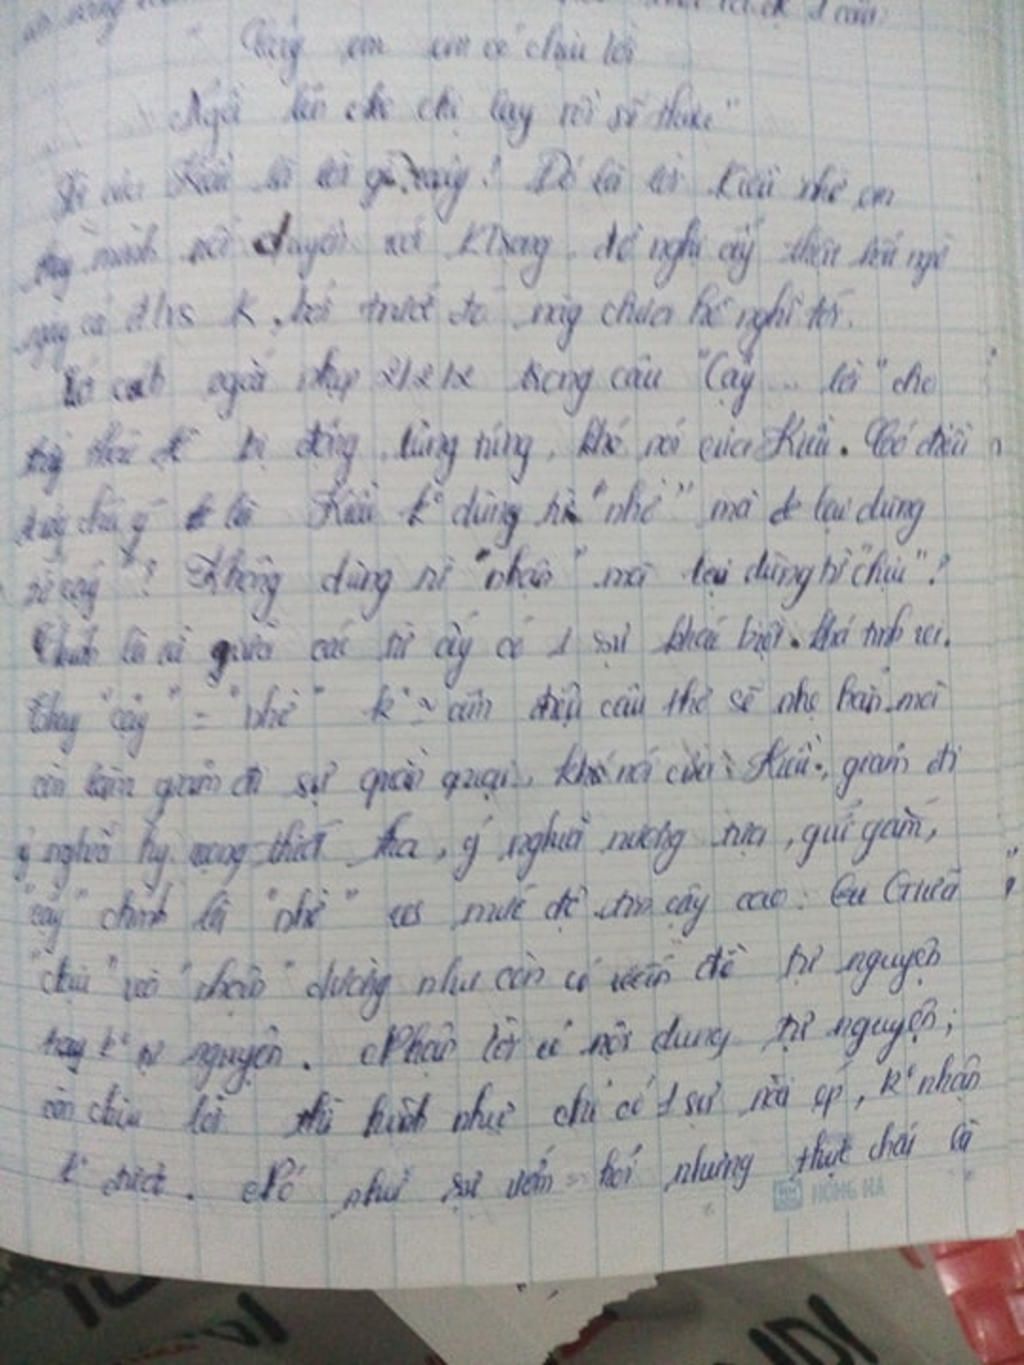 "Cậy em em có chịu lời
Ngồi lên cho chị lạy rồi sẽ thưa"
Lời của Kiều là lời gì vậy? Đó là lời Kiều nhờ em
thay mình nối duyên với K Trọng. đề nghị ấy thật bất ngờ
ngay cả đ/v K, bởi trước đó nàng chưa hề nghĩ tới.
Có cách ngắt nhịp 2/2/2 trong câu "Cậy ... lời" cho
thấy thái độ bị động, lúng túng, khó nói của Kiều. Có điều
đáng chú ý là Kiều k° dùng từ "nhờ" mà lại dùng
từ cậy"? Không dùng từ "nhận" mà lại dùng từ "chịu"?
là vì giữa các từ ấy có 1 sự khác biệt khá tinh vi.
Thay "cậy" = "nhờ" k° ~ âm điệu câu thơ sẽ nhẹ hơn mà
còn làm giảm đi sự quằn quại, khó nói của Kiều, giảm đi
ý nghĩa hy vọng thiết tha, ý nghĩa nương tựa, gửi gắm,
"cậy" chính là "nhờ" vs mức độ tin cậy cao. Giữa
"chịu" và "nhận" dường như còn có vấn đề tự nguyện
hay k° tự nguyện. Nhận lời có nội dung tự nguyện;
còn chịu lời thì hình như chỉ có 1 sự nài ép, k° nhận
k° được. Nó như sự ướm hỏi nhưng thực chất là
HỒNG HÀ